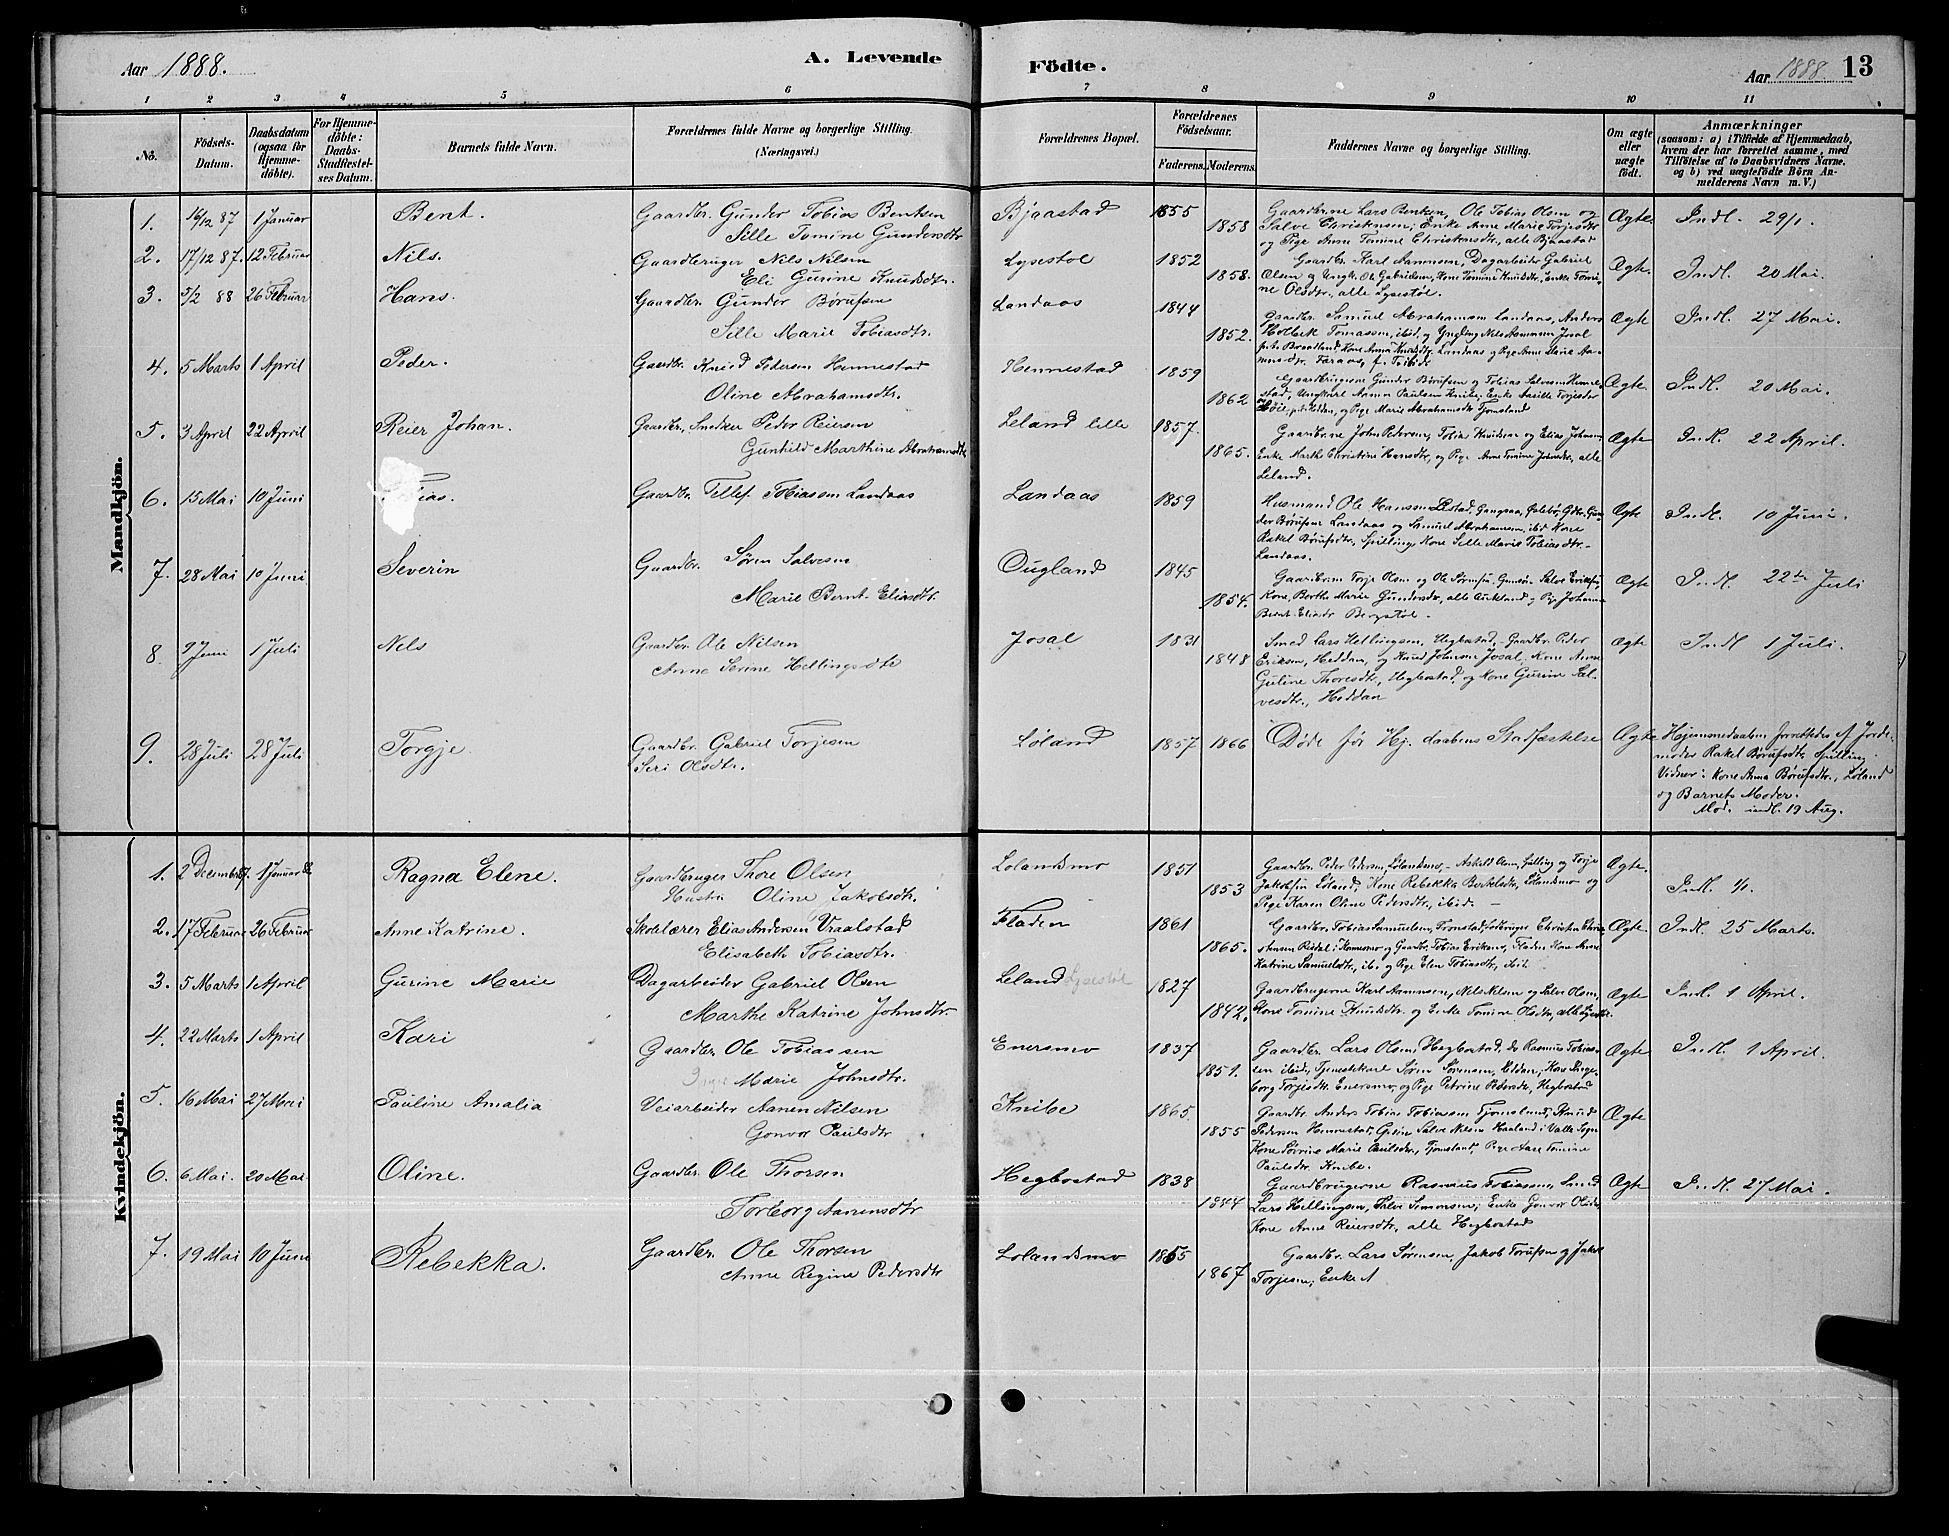 Aar 1888.
A. Levende
Födte.
Aar 1888. 13
1 2 3 4 5 6 7 8 9 10 11
No.
Födsels-Datum.
Daabsdatum (ogsaa for Hjemme-döbte).
For Hjemme-döbte: Daabs-Stadfæstel-ses Datum.
Barnets fulde Navn.
Forældrenes fulde Navne og borgerlige Stilling.
(Næringsvei.)
Forældrenes Bopæl.
Forældrenes Födselsaar.
Faderens. Moderens.
Faddernes Navne og borgerlige Stilling.
Om ægte eller uægte födt.
Anmærkninger
(saasom: a) i Tilfælde af Hjemmedaab, hvem der har forrettet samme, med Tilföielse af to Daabsvidners Navne, og b) ved uægtefödte Börn An-melderens Navn m. V.)
Mandkjön.
1. 16/12 87 1 Januar Bent. Gaardbr. Gunder Tobias Bentsen Bjaastad 1855 Gaardbrne Lars Bentsen, Ole Tobias Olsen og Ægte Indl. 29/1.
Sille Tomine Gundersdtr 1858 Salve Christensen; Enke Anne Marie Torjesdtr
og Pige Anne Tomine Christensdtr, alle Bjaastad
2. 17/12 87. 12 Februar Nils. Gaardbruger Nils Nilsen Lysestøl 1852 Gaardbr. Karl Aanensen, Dagarbeider Gabriel Ægte. Indl. 20 Mai.
Eli Gurine Knudsdtr. 1858. Olsen og Ungk. Ole Gabrielsen, Kone Tomine Knudsdtr, Enke Tomi-
ne Olsdtr., alle Lysestøl.
3. 5/2 88 26 Februar Hans. Gaardbr. Gunder Børufsen Landaas 1844 Gaardbr. Samuel Abrahamsen Landaas, Anders Ægte Indl. 27 Mai.
Sille Marie Tobiasdtr. 1852. Holbek Tomassen, ibid. og Yngling Nils Aanensen Josal
4. 5 Marts 1 April Peder. Gaardbr. Knud Pedersen Hennestad Hennestad 1859 Gaardbrugerne Gunder Børufsen og Tobias Salvesen Henne- Ægte Indl. 20 Mai.
Oline Abrahamsdtr. 1862 stad, Ungkarl Aanen Paulsen Knibe; Enke Torjesdtr
og Pige Marie Abrahamsdtr Tjomsland
5. 3 April 22 April Reier Johan. Gaardbr., Snedker Peder Reiersen Leland lille 1857. Gaardbrne John Pedersen, Tobias Knudsen og Elias Johnsen Ægte Indl. 22 April.
Gunhild Marthine Abrahamsdtr 1865. Enke Marthe Christine Hansdtr, og Pige Anne Tomine Johnsdtr, alle
Leland.
6. 15 Mai 10 Juni Tobias. Gaardbr. Tellef Tobiassen Landaas Landaas 1859 Husmand Ole Hanssen Ægte Indl. 10 Juni.
der Børufsen Landaas og Samuel Abrahamsen, ibid Kone
Rakel Børufsdtr, Spilling, Kone Sille Marie Tobiasdtr.
Landaas.
7. 28 Mai 10 Juni Severin Gaardbr. Søren Salvesen Ougland 1845 Gaardbrne Torje Olsen og Ole Sørensen Salve Eriksen, Ægte Indl. 22de Juli
Marie Bernt. Eliasdtr. 1854. Kone Berthe Marie Gundersdtr, alle Aukland og Pige Johanne
Bernt. Eliasdtr Bergstøl.
8. 9 Juni 1 Juli Nels Gaardbr. Ole Nilsen Josal 1831 Smed Lars Hellingsen, Hegbostad, Gaardbr. Peder Ægte Indl 1 Juli.
Anne Serine Hellingsdtr 1848 Eriksen, Heddan, og Knud Johnsen Josal, Kone Anne
Guline Thoresdtr., Hegbostad, og Kone Gurine Sal-
vesdtr., Heddan
9. 28 Juli 28 Juli Torgje. Gaardbr. Gabriel Torjesen Løland 1857 1866 Døde før Hj. daabens Stadfæstelse Ægte Hjemmedaaben forrettedes af Jorde-
Seri Olsdtr. moder Rakel Børufsdtr, Spilling.
Vidner: Kone Anna Børufsdtr., Løland
og Barnets Moder.
Mod. indl. 19 Aug.
Kvindekjön.
1. 2 December 87. 1 Januar 88 Ragna Elene. Gaardbruger Thore Olsen Lølandsmo 1851 Gaardbr. Peder Pedersen, Lølandsmo, Askild Olsen, Gulling og Torje Ægte. Indl. 1/1.
Hustru Oline Jakobsdtr. 1853 Jakobsen Løland, Kone Rebekka Bertelsdtr, Lølandsmo og
Pige Karen Oline Pedersdtr, ibid. —
2. 17 Februar 26 Februar Anne Katrine. Skolelærer Elias Andersen Vraalstad Fladen 1861 Gaardbr. Tobias Samuelsen, Tronstad, Christen Chri- Ægte. Indl. 25 Marts.
Elisabeth Tobiasdtr. 1865. stensen Risdal, og Gaardbr. Tobias Eriksen, Fladen Kone Anne
Katrine Samuelsdtr., ib. og Pige Elen Tobiasdtr, ibid.
3. 5 Marts 1 April Gurine Marie Dagarbeider Gabriel Olsen Leland Lysestøl 1827 Gaardbrugerne Karl Aanensen, Nils Nilsen og Salve Olsen, Ægte Indl. 1 April.
Marthe Katrine Johnsdtr. 1842. Kone Tomine Knudsdtr. og Enke Tomine Olsdtr, alle Lysestøl.
4. 22 Marts 1 April Kari Gaardbr. Ole Tobiassen Enersmo 1837 Gaardbr. Lars Olsen, Hegbostad, do Rasmus Tobias- Ægte Indl. 1 April.
Marie Johnsdtr. 1851. sen ibid, Tjenestekarl Søren Sørensen, Eddan; Kone Inge-
borg Torjesdtr. Enersmo, og Pige Petrine Pedersdtr, Hegbostad
5. 16 Mai 27 Mai Pauline Amalia Veiarbeider Aanen Nilsen Knibe 1865 Gaardbr. Anders Tobias Tobiassen Tjomsland, Knud Ægte
Gonvor Paulsdtr 1855 Pedersen Hennestad, Salve Nilsen Haaland i Valle Sogn
Kone Sørine Marie Paulsdtr, Tjomsland, Pige Aase Tomine
Paulsdtr. Knibe.
6. 6 Mai. 20 Mai Oline. Gaardbr. Ole Thorsen Hegbostad 1838 Gaardbrugerne Rasmus Tobiassen, Smed Ægte Indl. 27 Mai.
Torborg Aanensdtr 1844 Lars Hellingsen, Salve Simonsen; Enke Gonvor Olsdtr,
Kone Anne Reiersdtr, alle Hegbostad
7. 19 Mai 10 Juni Rebekka. Gaardbr. Ole Thorsen Lølandsmo 1855 Gaardbr. Lars Sørensen, Jakob Torufsen og Jakob
Anne Regine Pedersdtr 1867 Torjesen; Enke A